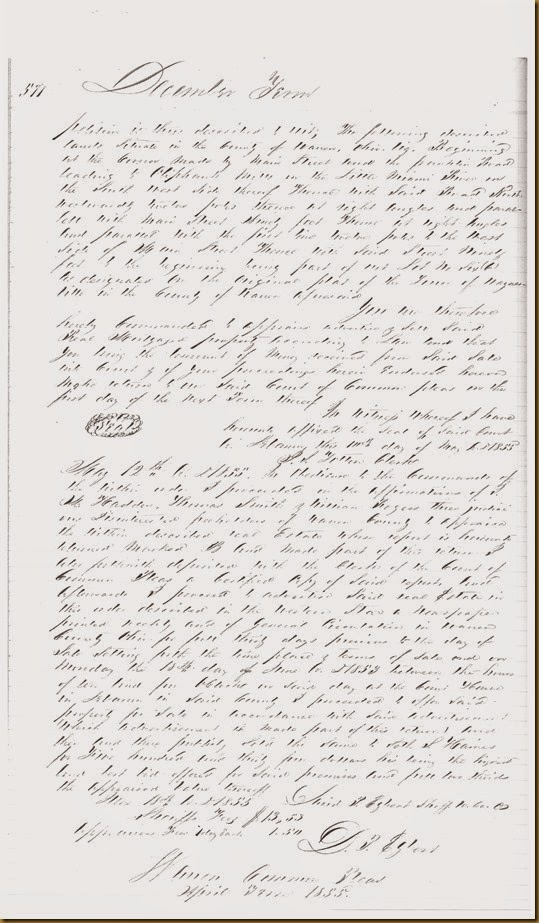 571 December Term
petition is there described to wit, The following described
lands situate in the County of Warren, Ohio viz, Beginning
at the Corner made by Main Street and the Road
leading to Mills on the Little Miami River on
the North West side thereof Thence with Said Road North
westwardly twelve poles thence at right angles and paral-
lell with Main Street feet Thence at right angles
and parallel with the first line twelve poles to the West
Side of Main Street Thence with Said Street
feet to the beginning being part of out Lot No
as designated on the original plat of the Town of Waynes-
ville in the County of Warren aforesaid
You are therefore
hereby Commanded to appraise advertise & Sell Said
Real Mortgaged property according to Law and that
you bring the amount of Money received from Said Sale
into Court & of your proceedings herein Endorsed hereon
Make return to our Said Court of Common pleas on the
first day of the Next Term thereof
In Witness Whereof I have
hereunto affixed the Seal of Said Court
Seal
at Lebanon this day of May A.D. 1855
Clerk
May 12th A.D. 1855. In obedience to the Commands of
the within order I proceeded on the affirmations of
Thomas Smith & William Rogers three judici-
ous Disinterested freeholders of Warren County to appraise
the within described real Estate whose report is herewith
returned Marked B and made part of this return I
also forthwith deposited with the Clerk of the Court of
Common Pleas a Certified Copy of Said report, and
afterwards I proceeded to advertise Said real Estate in
this order described in the Western Star a Newspaper
printed weekly and of General Circulation in Warren
County Ohio for full thirty days previous to the day of
Sale Setting forth the time place & terms of sale and on
Monday the 18th day of June A.D. 1855 between the hours
of ten and four O'Clock on said day at the Court House
in Lebanon in Said County I proceeded to offer Said
property for Sale in accordance with Said advertisement
Which advertisement is made part of this return and
then and there publicly sold the Same to Seth S Haines
for hundred and thirty five dollars his being the highest
and last bid offered for Said premises and full two thirds
the appraised Value thereof
18th A.D. 1855
David S Egbert Shff W. Co. O
Sheriffs Fees $13,53
1.50
D. S. Egbert
Warren Common Pleas
April Term 1855.